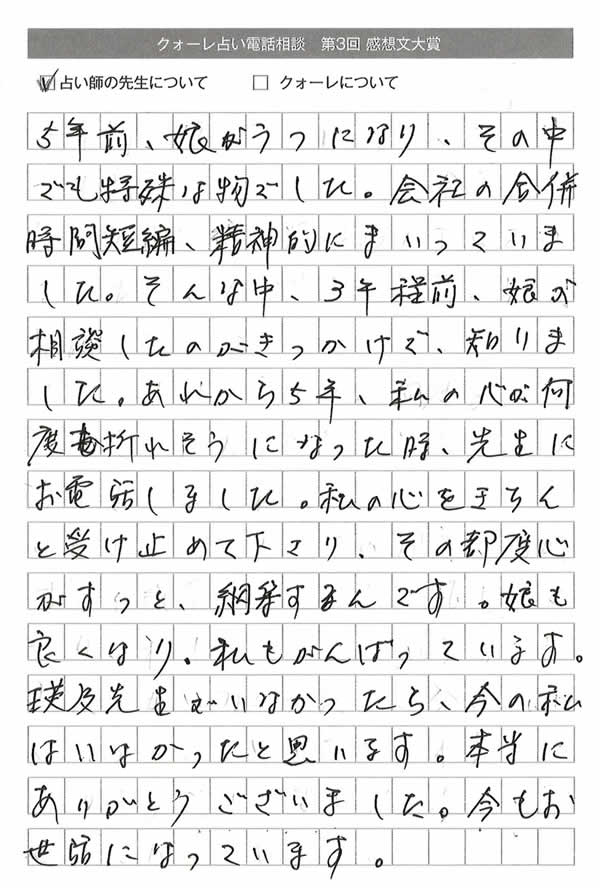 クォーレ占い電話相談　第3回 感想文大賞
☑占い師の先生について　□ クォーレについて
5年前、娘がうつになり、その中
でも特殊な物でした。会社の合併
時間短縮、精神的にまいっていま
した。そんな中、3年程前、娘が
相談したのがきっかけで、知りま
した。あれから5年、私の心が何
度も折れそうになった時、先生に
お電話しました。私の心をきちん
と受け止めて下さり、その都度心
がすっと、するんです。娘も
良くなり。私もがんばっています。
先生がいなかったら、今の私
はいなかったと思います。本当に
ありがとうございました。今もお
世話になっています。